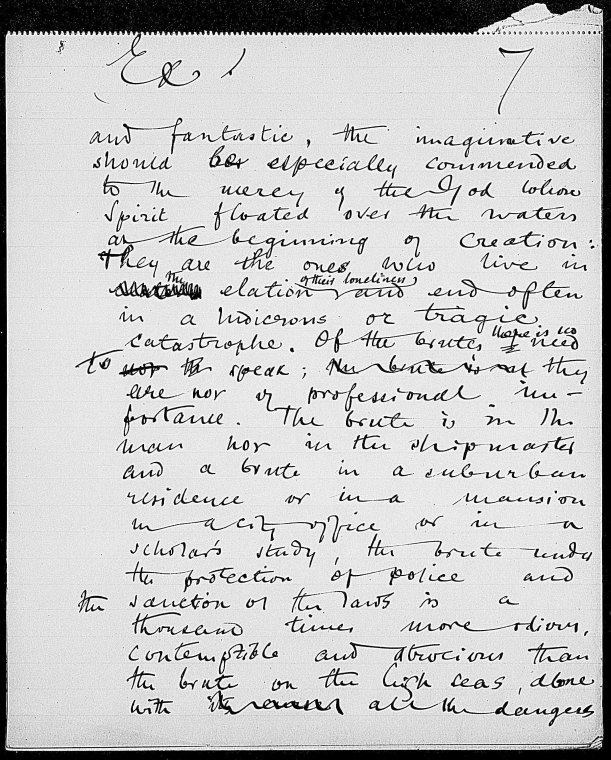 7
and fantastic, the imaginative
should be especially commended
to the mercy of the God whose
Spirit floated over the waters
at the beginning of Creation:
They are the ones who live in
the elation of their loneliness and end often
in a ludicrous or tragic
catastrophe. Of the brutes there is no need
to speak; they
are not of professional im-
portance. The brute is in the
man not in the shipmaster
and a brute in a suburban
residence or in a mansion
in a city office or in a
scholar's study, the brute under
the protection of police and
the sanction of the laws is a
thousand times more odious,
contemptible and atrocious than
the brute on the high seas, alone
with all the dangers